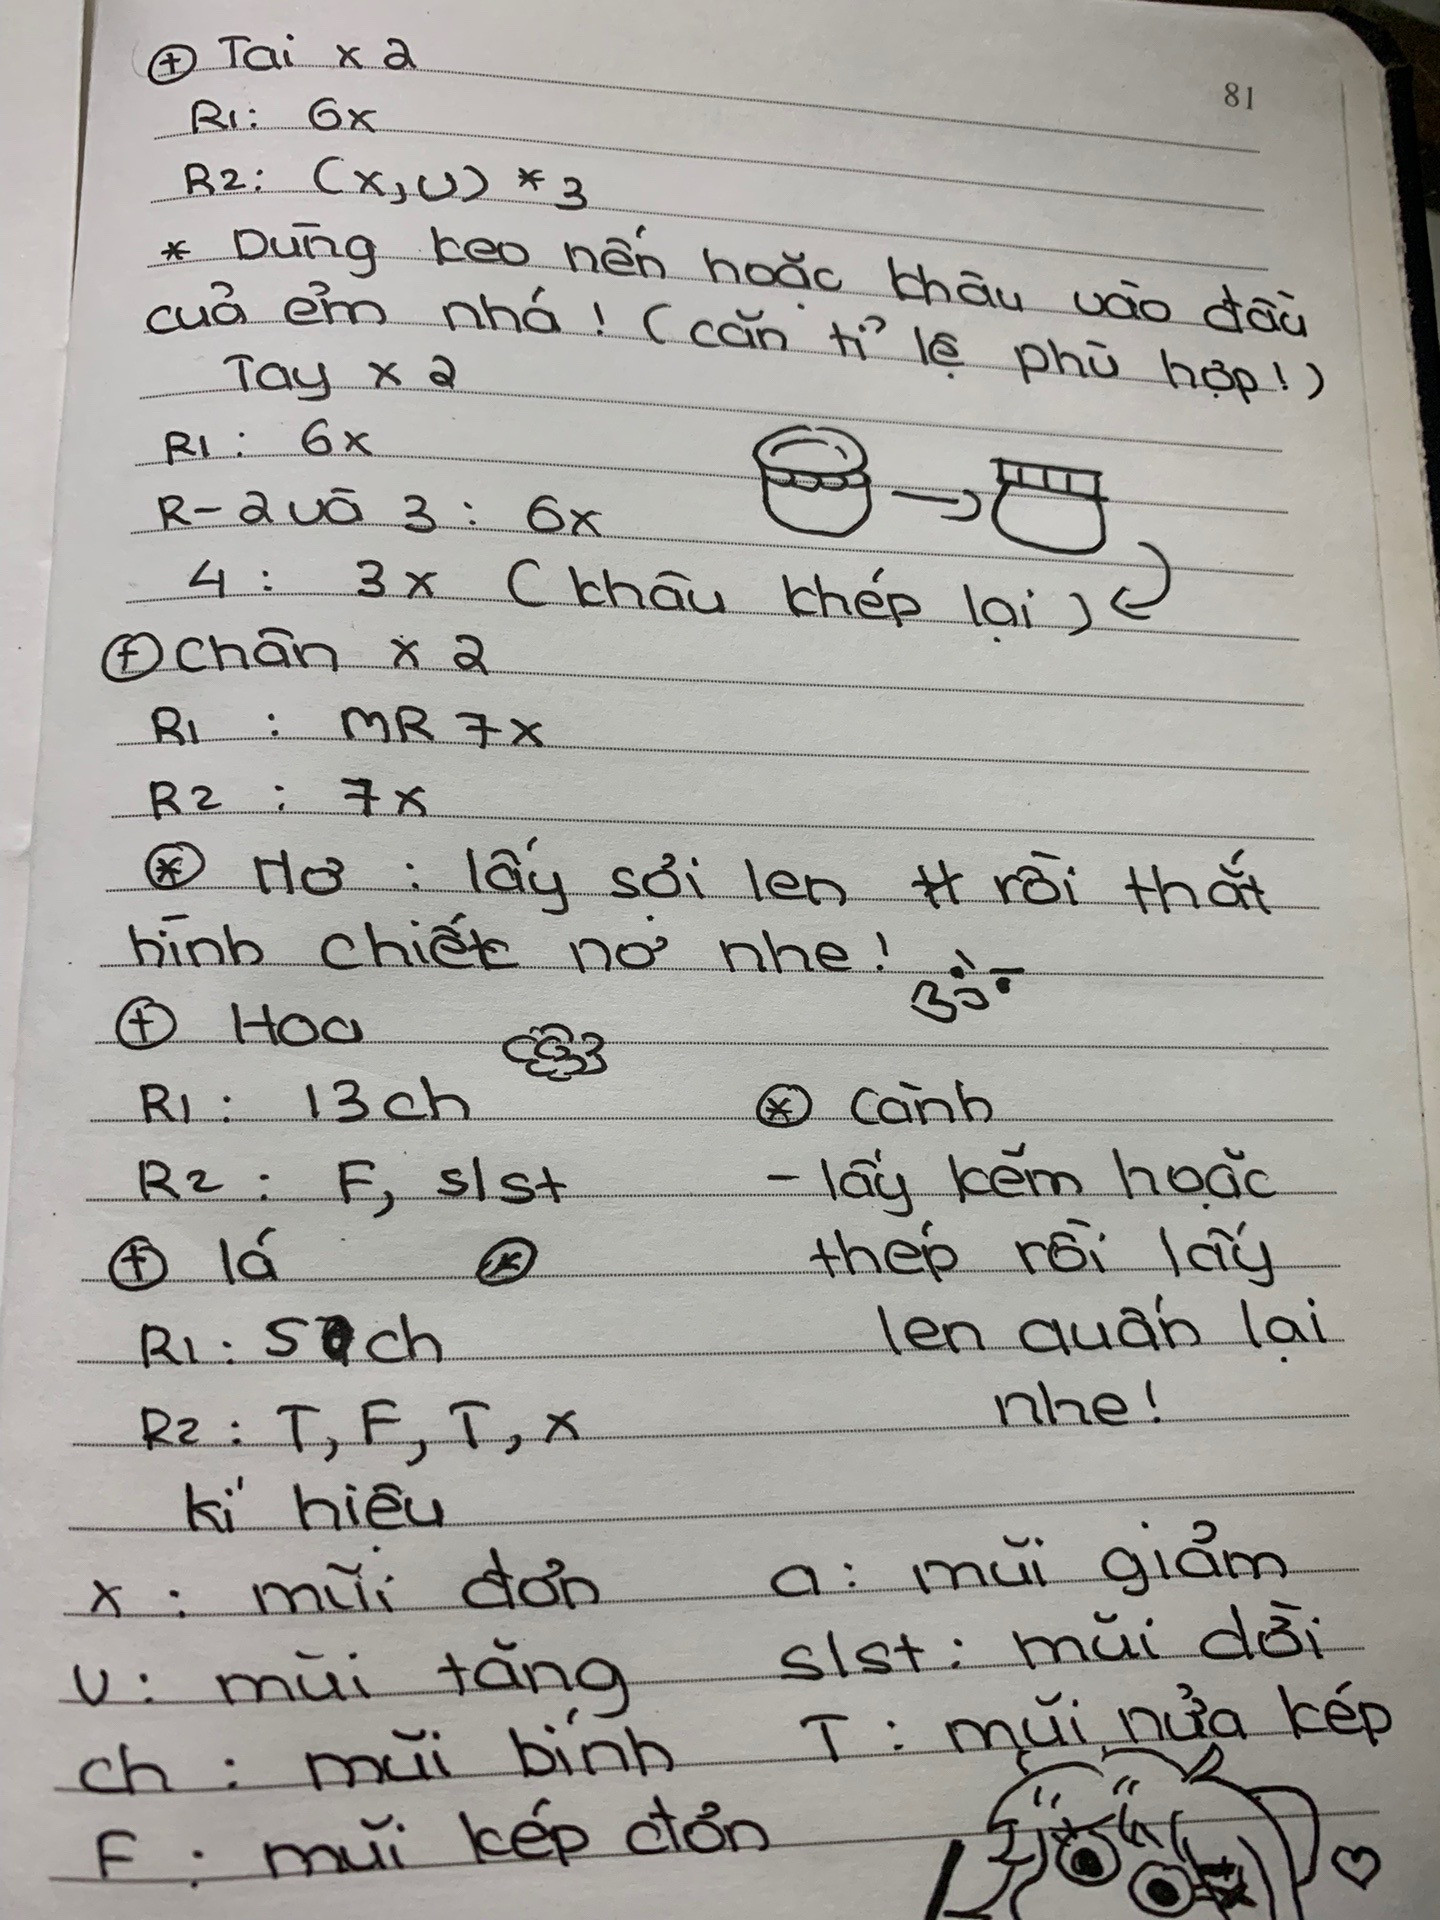 81
⊕ Tai x 2
R1: 6x
R2: (x,u) * 3
* Dùng keo nến hoặc khâu vào đầu
của ẻm nhá! (căn tỉ lệ phù hợp!)
Tay x 2
R1: 6x
R-2 và 3: 6x
4: 3x (khâu khép lại)
⊕ chân x 2
R1: MR 7x
R2: 7x
⊛ Nơ: lấy sợi len rồi thắt
hình chiếc nơ nhe!
⊕ Hoa
R1: 13ch
R2: F, slst
⊕ lá
R1: 5 ch
R2: T, F, T, x
⊛ cành
- lấy kẽm hoặc
thép rồi lấy
len quấn lại
nhe!
kí hiệu
x: mũi đơn
u: mũi tăng
ch: mũi bính
F: mũi kép đơn
a: mũi giảm
slst: mũi dời
T: mũi nửa kép